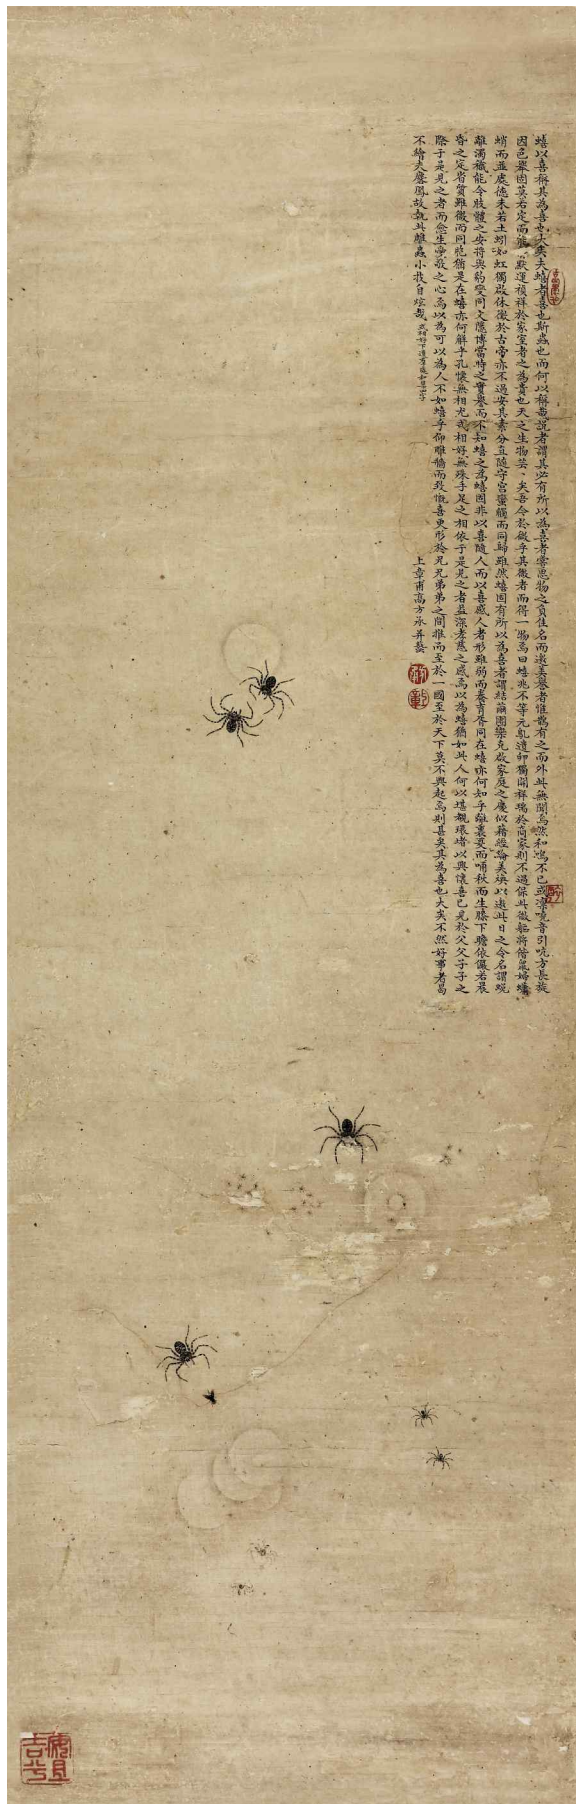 蟢以喜稱其為喜也大矣夫蟢者喜也斯蟲也而何以稱哉說者謂其必有所以為喜者嘗思物之負佳名而邀美譽者惟鵲有之而外此無聞焉然和鳴不已或凜曉音引吭方長旋
因色舉固莫若定而能默運禎祥於家室者之為貴也天之生物芸矣吾今於微乎其微者而得一物焉曰蟢兆不等元鳥遺卵獨開祥瑞於商家則不過保此微軀將偕鼠婦蠨
蛸而並處德未若土蚓如虹獨啟休徵於古帝亦不過安其素分直隨守宮蠻觸而同歸雖然蟢固有所以為喜者謂結繭團欒克啟家庭之慶似藉經綸美煥以邀此日之令名謂蛻
離濁穢能令肢體之安將與豹變同文隱博當時之實譽而不知蟢之為蟢固非以喜隨人而以喜感人者形雖弱而養育胥同在蟢亦何知乎離裏夏而嘯秋而生膝下瞻依儼若晨
昏之定省質雖微而同胞猶是在蟢亦何解乎孔懷無相尤式相好無殊手足之相依于是見之者益深孝慈之感焉以為蟢猶如此人何以堪觀環堵以興懷喜已見於父父子子之
際于是見之者而愈生愛敬之心焉以為可以為人不如蟢乎仰雕牆而致慨喜更形於兄兄弟弟之間推而至於一國至於天下莫不興起焉則甚矣其為喜也大矣不然好事者曷
不繪夫麐鳳故執此雕蟲小技自炫哉
上章甫高方承并墪